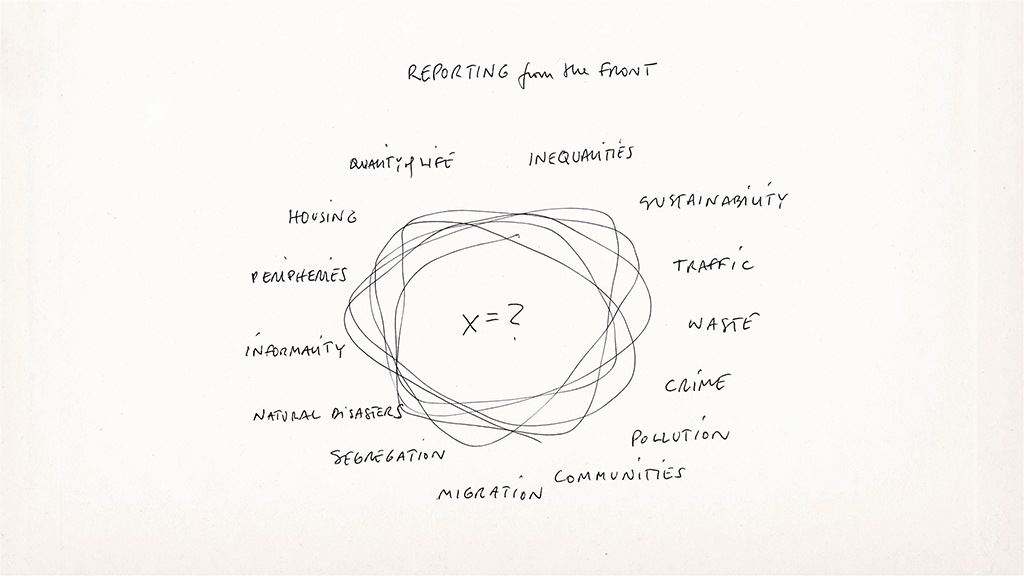 REPORTING from the FRONT
QUALITY of LIFE
INEQUALITIES
SUSTAINABILITY
HOUSING
TRAFFIC
PERIPHERIES
WASTE
X = ?
INFORMALITY
CRIME
NATURAL DISASTERS
POLLUTION
SEGREGATION
COMMUNITIES
MIGRATION